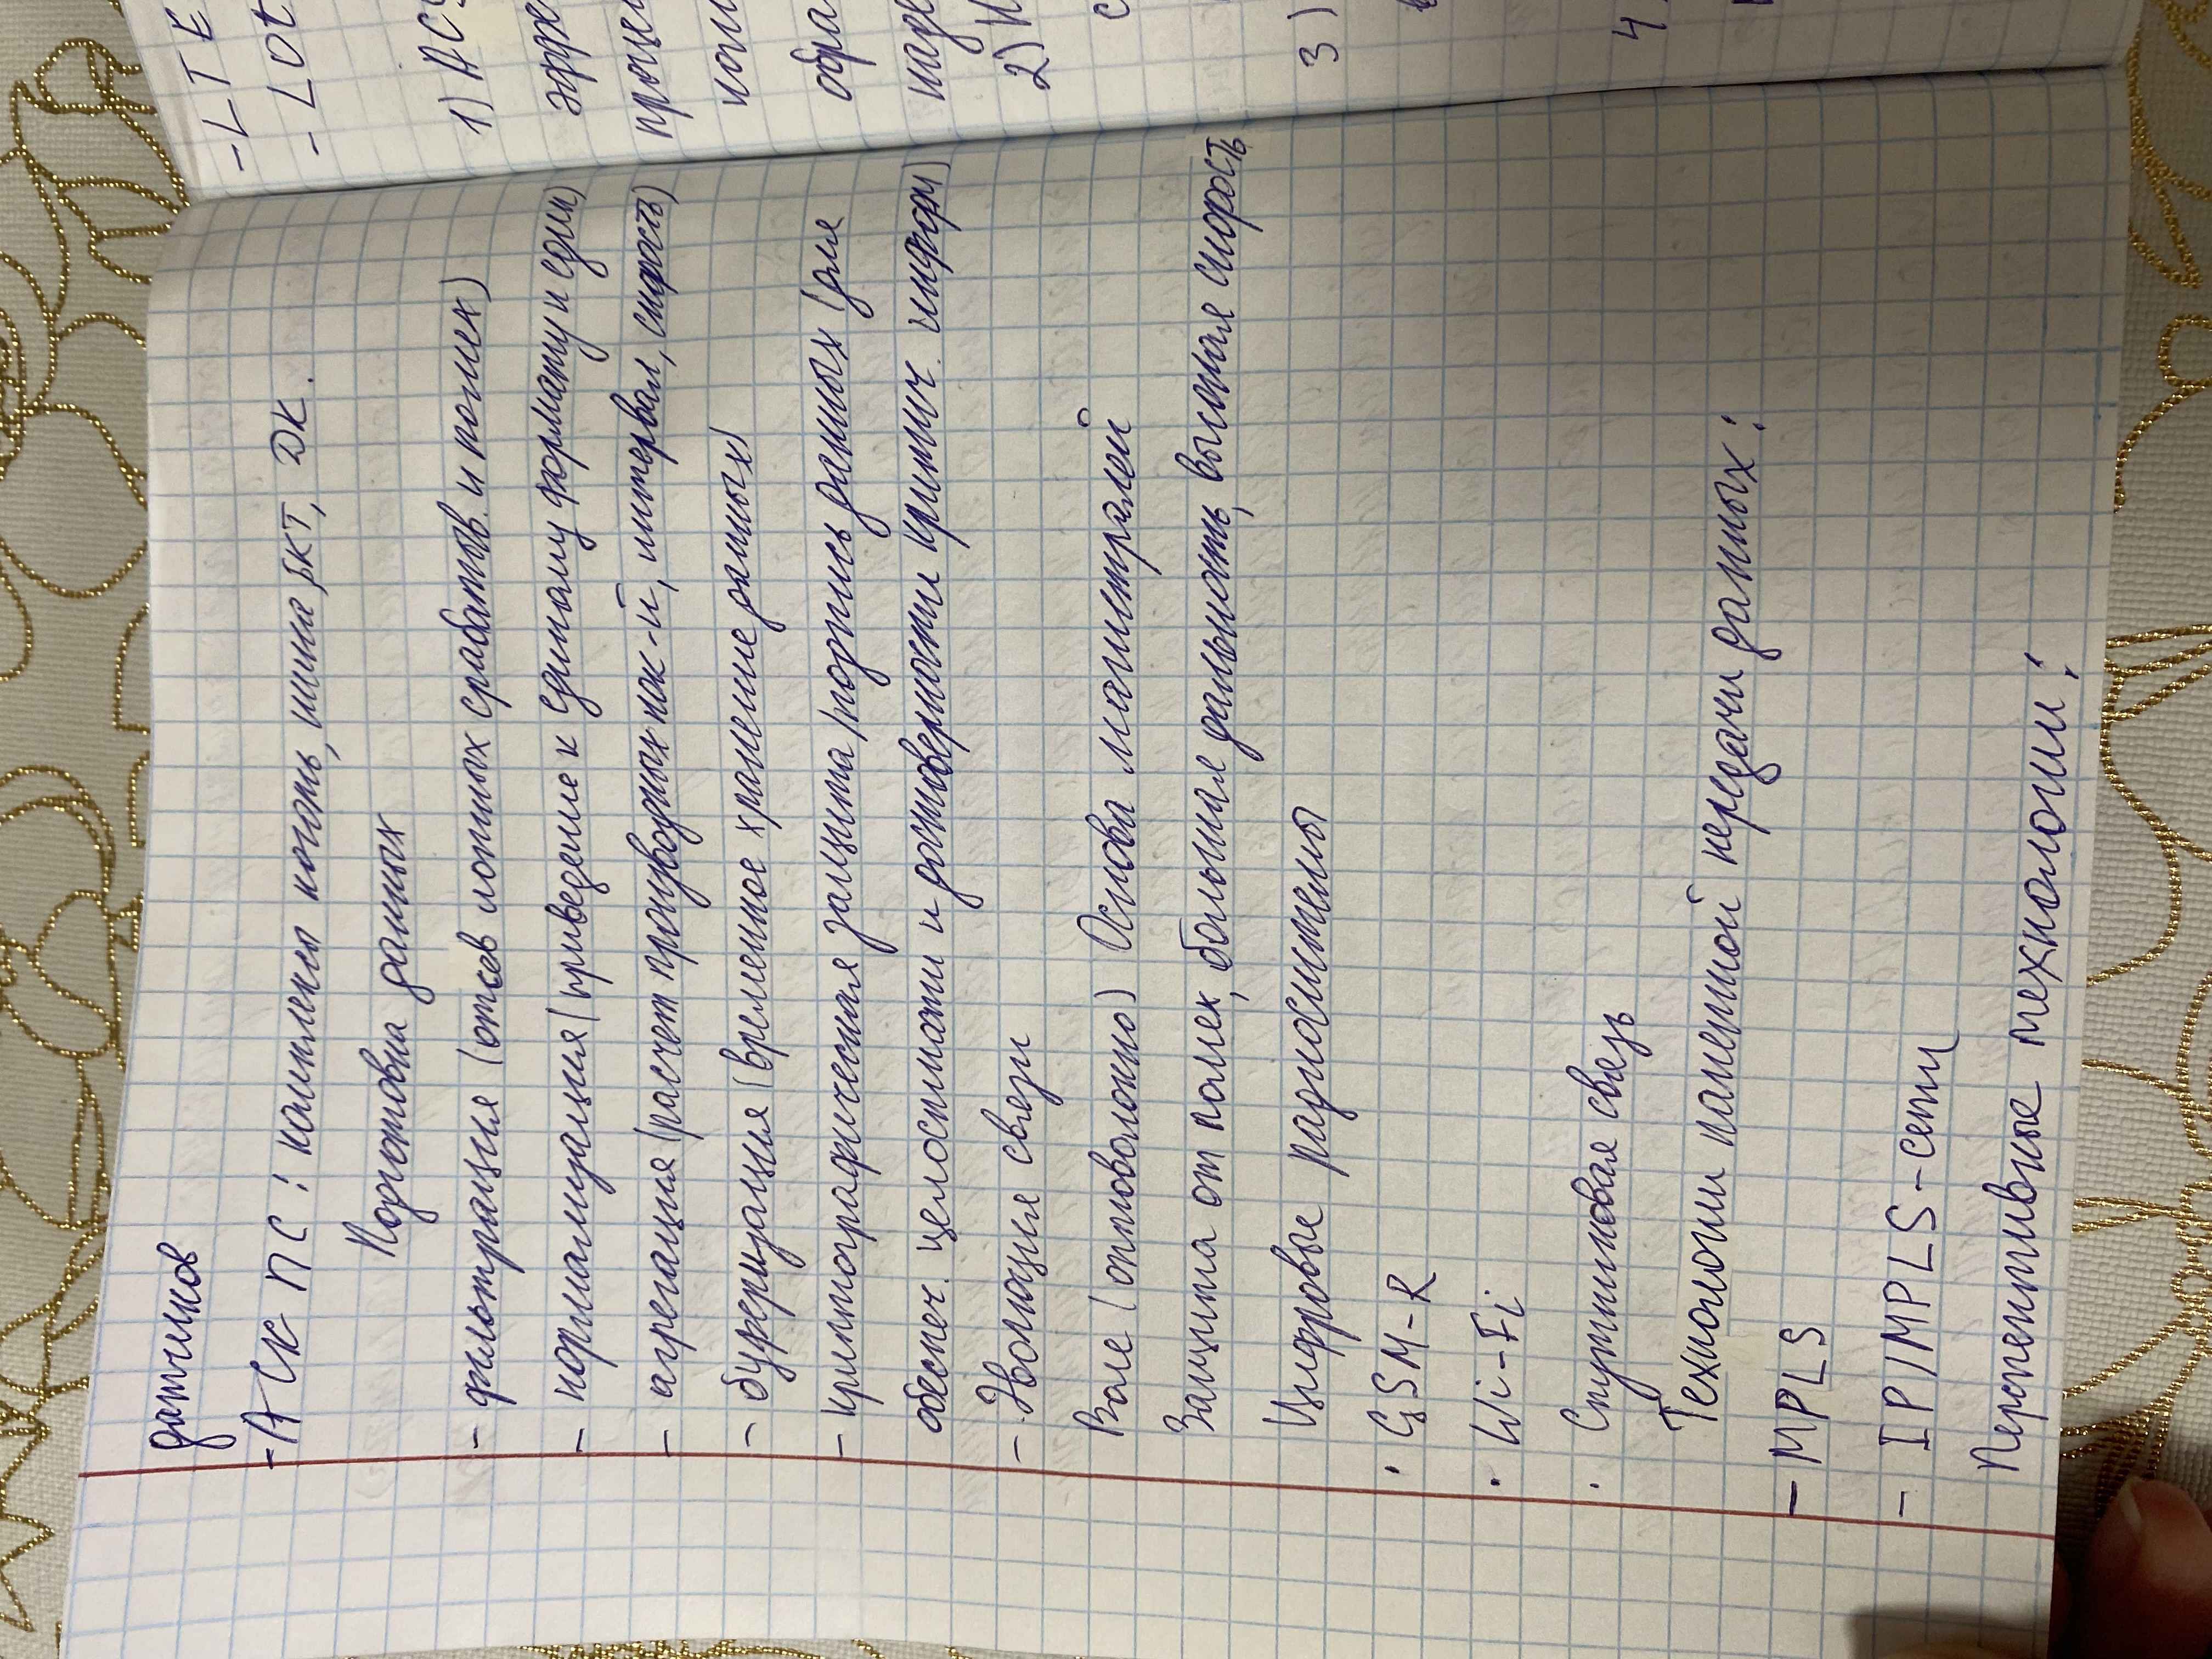 датчиков
- АСК ПС: колёса, шина, БКТ, ДК.
Подготовка данных
- фильтрация (отсев ложных срабатыв. и помех)
- нормализация (приведение к единому формату и един)
- агрегация (расчет производных пок-й, интервал, скорость)
- буферизация (временное хранение данных)
- криптографическая защита / подпись данных (для
обеспеч. целостности и достоверности критич. информ)
- Эволюция связи
Воле (оптоволокно) Основа магистралей
Защита от помех, большая дальность, высокая скорость
Цифровые радиосистемы
· GSM-R
· Wi-Fi
· Спутниковая связь
Технологии пакетной передачи данных:
- MPLS
- IP/MPLS-сети
Перспективные технологии:
- LTE
- Lot
1) АС
эффе
проце
обра
наде
2) И
с
3)
4